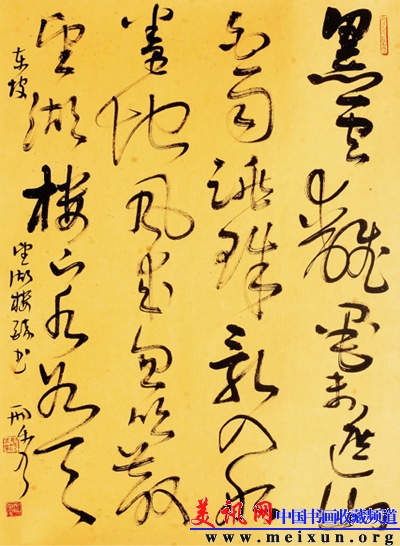 黑雲翻墨未遮山
白雨跳珠亂入船
卷地風来忽吹散
望湖樓下水如天
东坡
望湖楼醉书
美讯网 中国书画收藏频道
www.meixun.org